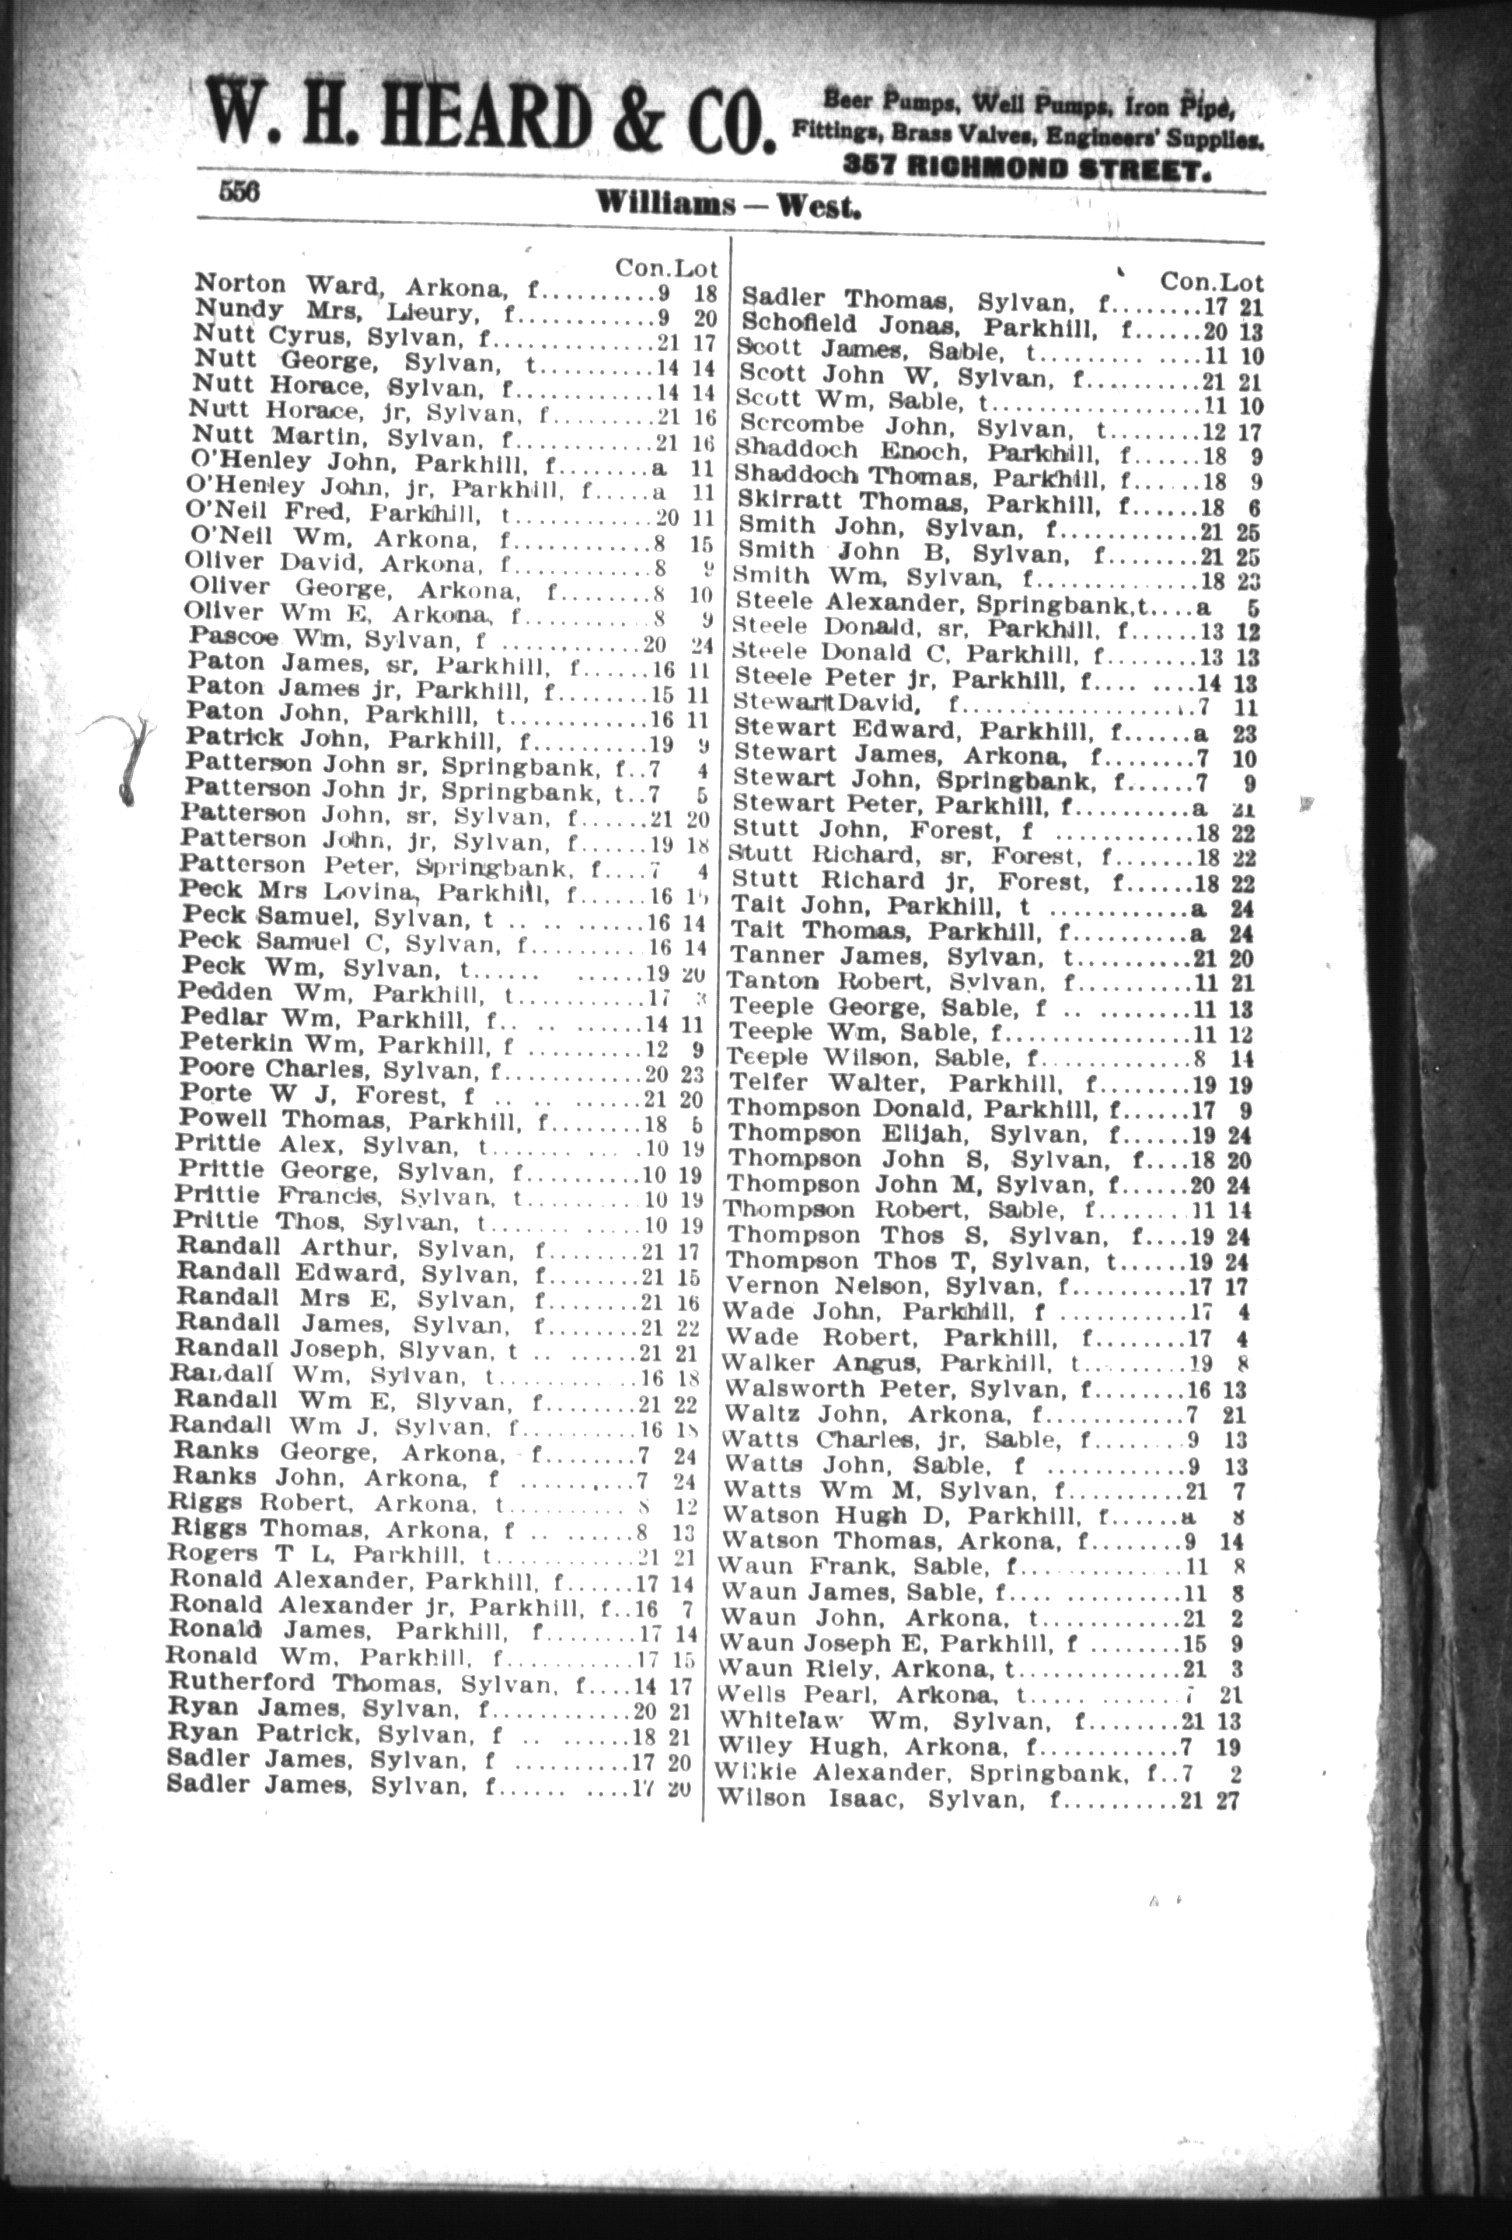 W. H. HEARD & CO.
Beer Pumps, Well Pumps, Iron Pipe,
Fittings, Brass Valves, Engineers' Supplies.
357 RICHMOND STREET.
556
Williams — West.
Con. Lot
Norton Ward, Arkona, f..........9 18
Nundy Mrs, Lieury, f............9 20
Nutt Cyrus, Sylvan, f..............21 17
Nutt George, Sylvan, t..........14 14
Nutt Horace, Sylvan, f............14 14
Nutt Horace, jr, Sylvan, f.........21 16
Nutt Martin, Sylvan, f............21 16
O'Henley John, Parkhill, f........a 11
O'Henley John, jr, Parkhill, f.....a 11
O'Neil Fred, Parkhill, t............20 11
O'Neil Wm, Arkona, f............8 15
Oliver David, Arkona, f............8 9
Oliver George, Arkona, f........8 10
Oliver Wm E, Arkona, f..........8 9
Pascoe Wm, Sylvan, f ............20 24
Paton James, sr, Parkhill, f......16 11
Paton James jr, Parkhill, f........15 11
Paton John, Parkhill, t............16 11
Patrick John, Parkhill, f..........19 9
Patterson John sr, Springbank, f..7 4
Patterson John jr, Springbank, t..7 5
Patterson John, sr, Sylvan, f......21 20
Patterson John, jr, Sylvan, f......19 18
Patterson Peter, Springbank, f....7 4
Peck Mrs Lovina, Parkhill, f......16
Peck Samuel, Sylvan, t .. .. ......16 14
Peck Samuel C, Sylvan, f..........16 14
Peck Wm, Sylvan, t...... ......19 20
Pedden Wm, Parkhill, t...........17 3
Pedlar Wm, Parkhill, f.. .. ......14 11
Peterkin Wm, Parkhill, f ..........12 9
Poore Charles, Sylvan, f............20 23
Porte W J, Forest, f .. .. ......21 20
Powell Thomas, Parkhill, f........18 5
Prittie Alex, Sylvan, t........ ....10 19
Prittie George, Sylvan, f..........10 19
Prittie Francis, Sylvan, t..........10 19
Prittie Thos, Sylvan, t....... .....10 19
Randall Arthur, Sylvan, f........21 17
Randall Edward, Sylvan, f........21 15
Randall Mrs E, Sylvan, f........21 16
Randall James, Sylvan, f........21 22
Randall Joseph, Slyvan, t .. ......21 21
Randall Wm, Sylvan, t............16 18
Randall Wm E, Slyvan, f........21 22
Randall Wm J, Sylvan, f..........16 18
Ranks George, Arkona, f........7 24
Ranks John, Arkona, f ..........7 24
Riggs Robert, Arkona, t..........8 12
Riggs Thomas, Arkona, f .. ......8 13
Rogers T L, Parkhill, t............21 21
Ronald Alexander, Parkhill, f......17 14
Ronald Alexander jr, Parkhill, f..16 7
Ronald James, Parkhill, f........17 14
Ronald Wm, Parkhill, f...........17 15
Rutherford Thomas, Sylvan, f....14 17
Ryan James, Sylvan, f............20 21
Ryan Patrick, Sylvan, f .. ......18 21
Sadler James, Sylvan, f ..........17 20
Sadler James, Sylvan, f...... ....17 20
Con. Lot
Sadler Thomas, Sylvan, f........17 21
Schofield Jonas, Parkhill, f......20 13
Scott James, Sable, t......... ....11 10
Scott John W, Sylvan, f..........21 21
Scott Wm, Sable, t..................11 10
Scrcombe John, Sylvan, t........12 17
Shaddoch Enoch, Parkhill, f......18 9
Shaddoch Thomas, Parkhill, f......18 9
Skirratt Thomas, Parkhill, f......18 6
Smith John, Sylvan, f............21 25
Smith John B, Sylvan, f........21 25
Smith Wm, Sylvan, f..............18 23
Steele Alexander, Springbank,t....a 5
Steele Donald, sr, Parkhill, f......13 12
Steele Donald C, Parkhill, f........13 13
Steele Peter jr, Parkhill, f.... .....14 13
Stewart David, f....................7 11
Stewart Edward, Parkhill, f......a 23
Stewart James, Arkona, f........7 10
Stewart John, Springbank, f......7 9
Stewart Peter, Parkhill, f..........a 21
Stutt John, Forest, f ............18 22
Stutt Richard, sr, Forest, f.......18 22
Stutt Richard jr, Forest, f......18 22
Tait John, Parkhill, t ............a 24
Tait Thomas, Parkhill, f..........a 24
Tanner James, Sylvan, t..........21 20
Tanton Robert, Sylvan, f..........11 21
Teeple George, Sable, f .. ........11 13
Teeple Wm, Sable, f................11 12
Teeple Wilson, Sable, f.............8 14
Telfer Walter, Parkhill, f........19 19
Thompson Donald, Parkhill, f......17 9
Thompson Elijah, Sylvan, f......19 24
Thompson John S, Sylvan, f....18 20
Thompson John M, Sylvan, f......20 24
Thompson Robert, Sable, f........11 14
Thompson Thos S, Sylvan, f....19 24
Thompson Thos T, Sylvan, t......19 24
Vernon Nelson, Sylvan, f..........17 17
Wade John, Parkhill, f ............17 4
Wade Robert, Parkhill, f........17 4
Walker Angus, Parkhill, t..........19 8
Walsworth Peter, Sylvan, f........16 13
Waltz John, Arkona, f............7 21
Watts Charles, jr, Sable, f........9 13
Watts John, Sable, f ............9 13
Watts Wm M, Sylvan, f..........21 7
Watson Hugh D, Parkhill, f......a 8
Watson Thomas, Arkona, f........9 14
Waun Frank, Sable, f...............11 8
Waun James, Sable, f.... ..........11 8
Waun John, Arkona, t............21 2
Waun Joseph E, Parkhill, f ........15 9
Waun Riely, Arkona, t..............21 3
Wells Pearl, Arkona, t..... .......7 21
Whitelaw Wm, Sylvan, f........21 13
Wiley Hugh, Arkona, f............7 19
Wilkie Alexander, Springbank, f..7 2
Wilson Isaac, Sylvan, f..........21 27